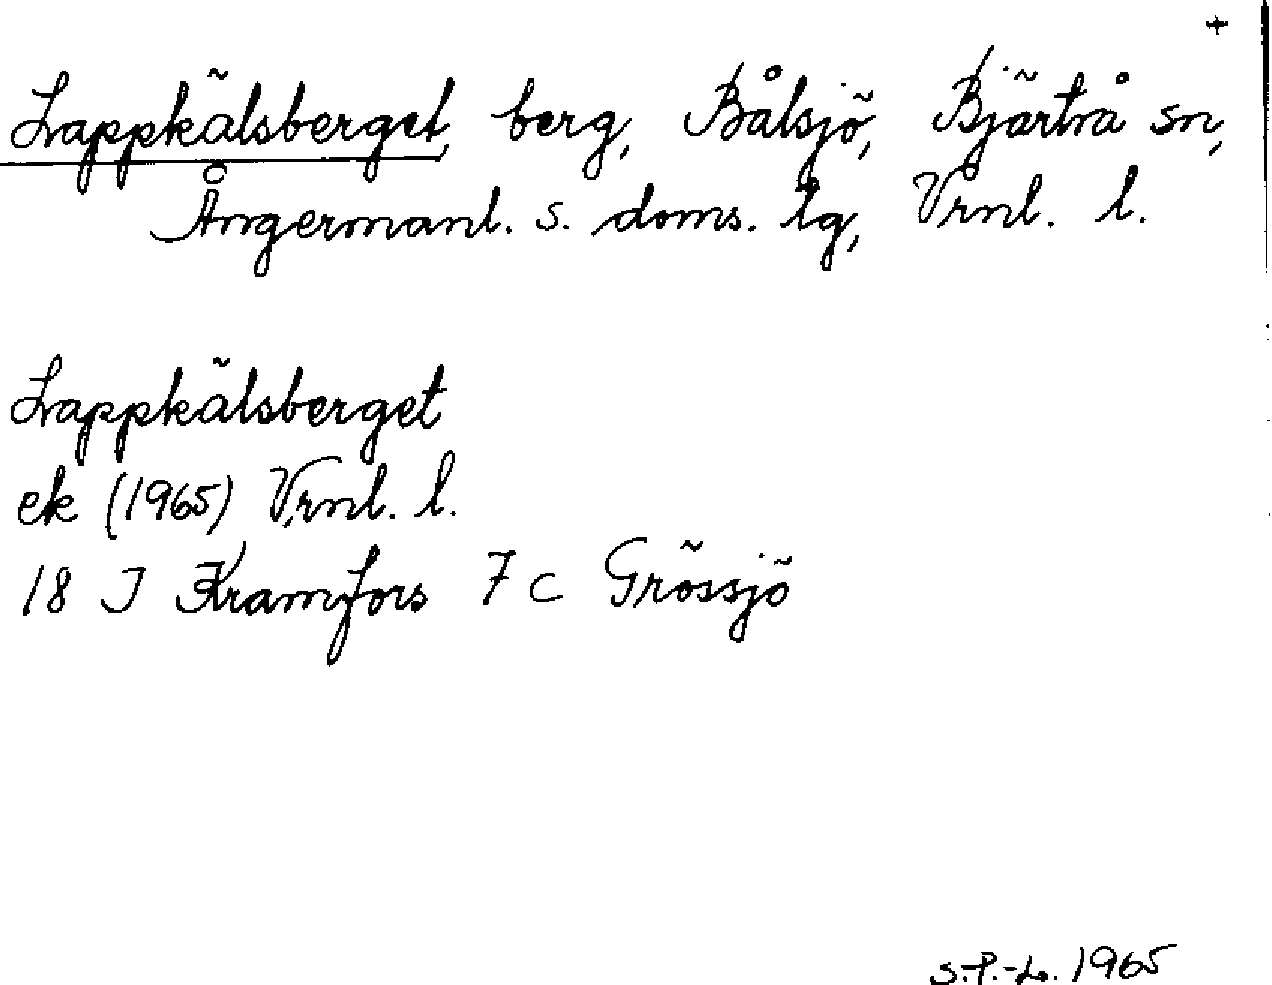 +
Lappkälsberget, berg, Bålsjö, Bjärtrå sn,
Ångermanl. s. doms. lg, Vrnl. l.
Lappkälsberget
ek (1965) Vrnl. l.
18 J Kramfors 7 c Grössjö
S.P.-L. 1965